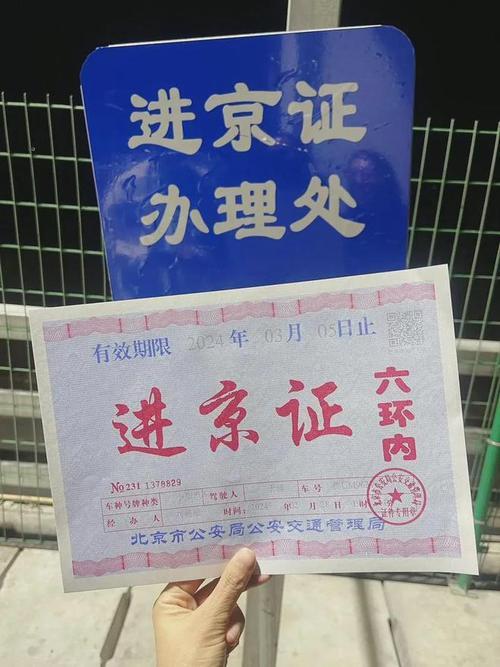 进京证
办理处
有效期限 2024 年 03 月 05 日止
进京证
六环内
No 231 1378829
车种号牌种类 驾驶人 车号
经办人 时间: 2024 年 月 日
证件专用章
北京市公安局公安交通管理局